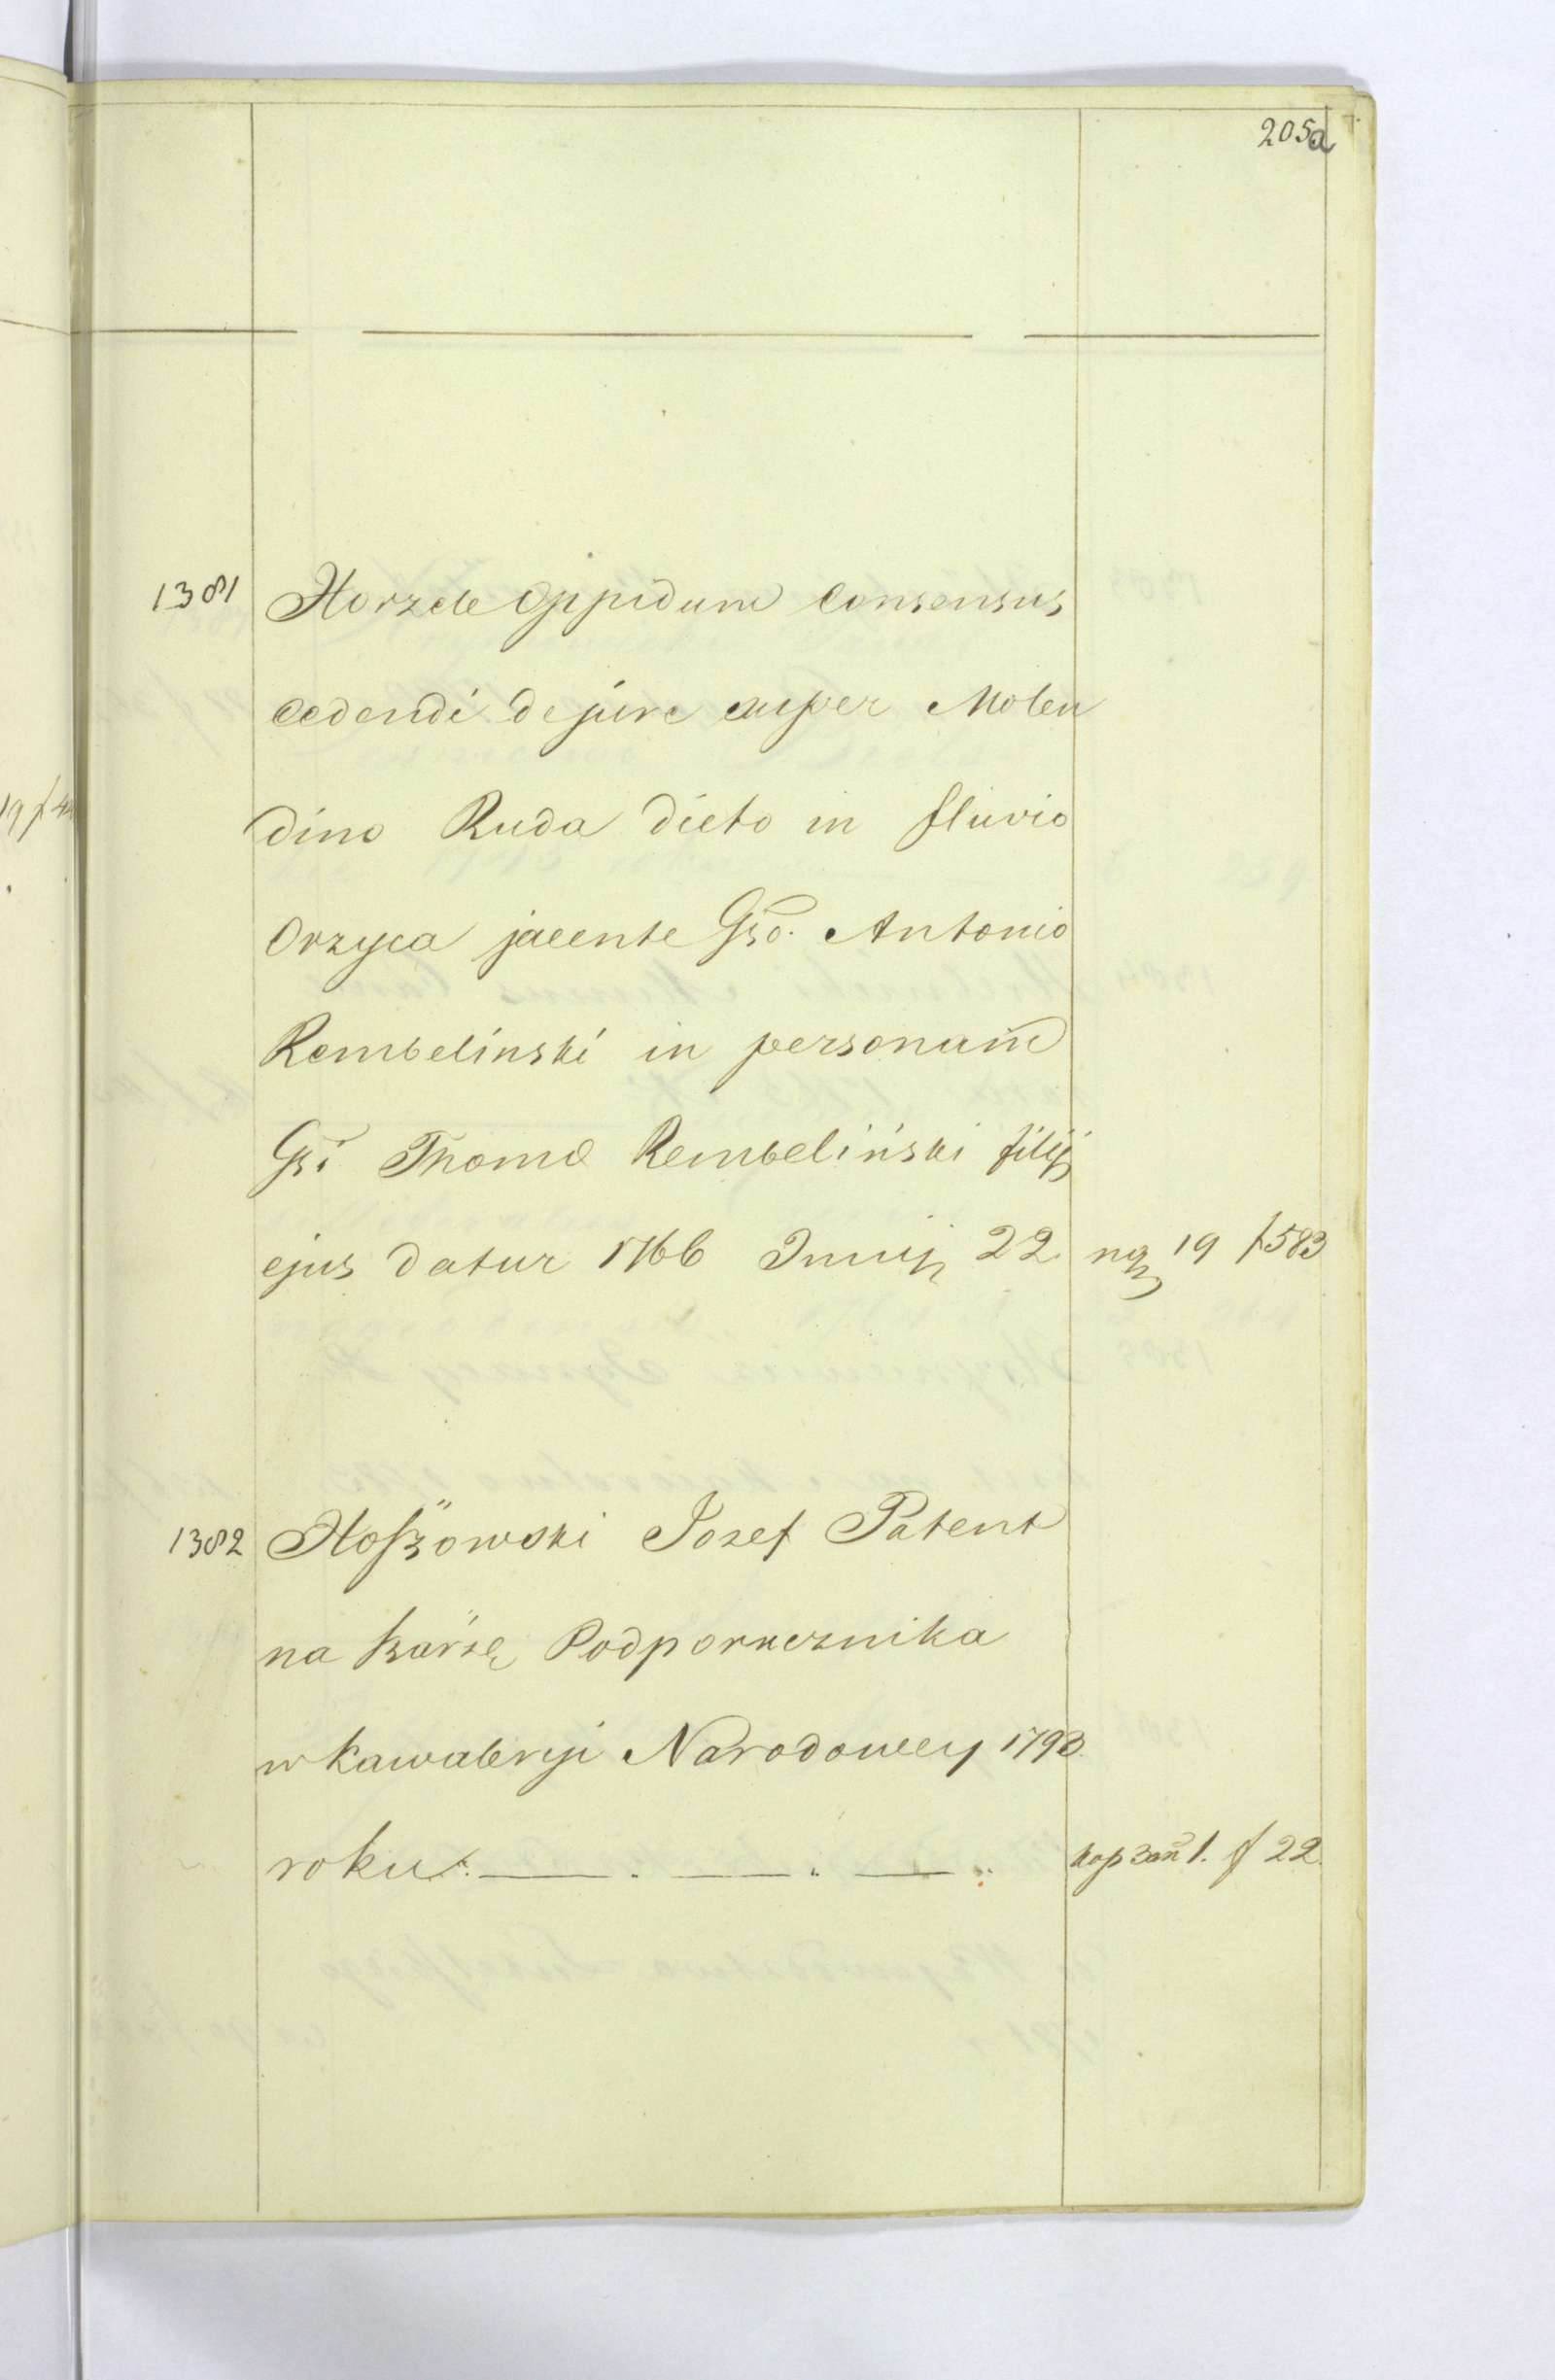 205a
1381 Horzele Oppidum Consensus
cedendi de jure super Molen
dino Ruda dicto in fluvio
Orzyca jacente Gso. Antonio
Rembelinski in personam̄
Gsi Thomæ Rembeliński filij
ejus datur 1766 Junij 22 ng 19 f 583
1382 Hoſzowski Jozef Patent
na Szarżę Podporucznika
w Kawaleryi Narodowey 1793.
roku. — . — . — . Kop Zan 1. f 22.